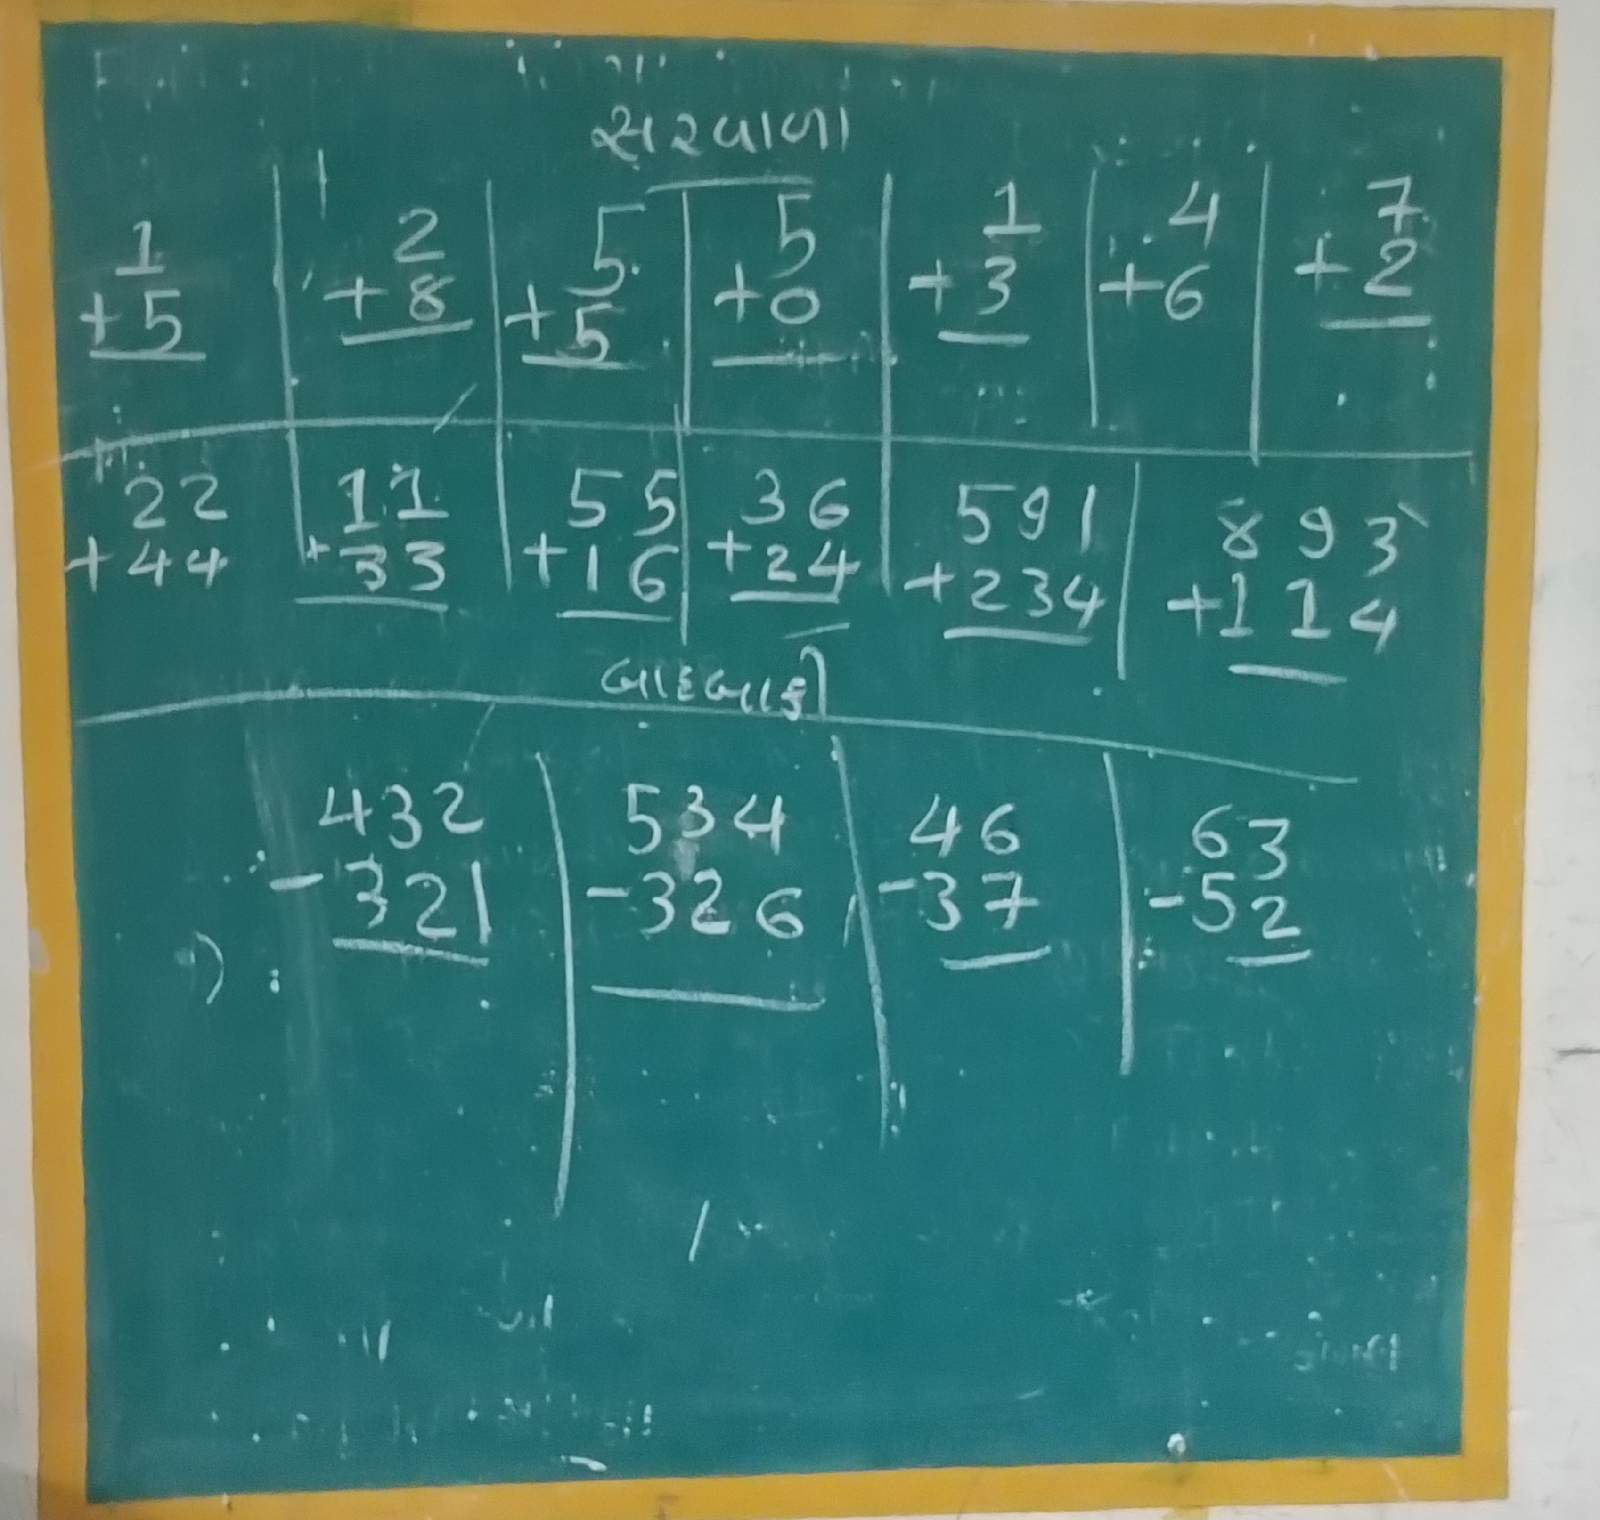 સરવાળા
1 2 5 5 1 4 7
+5 +8 +5 +0 +3 +6 +2
22 11 55 36 591 893
+44 +33 +16 +24 +234 +114
બાદબાકી
432 534 46 63
-321 -326 -37 -52